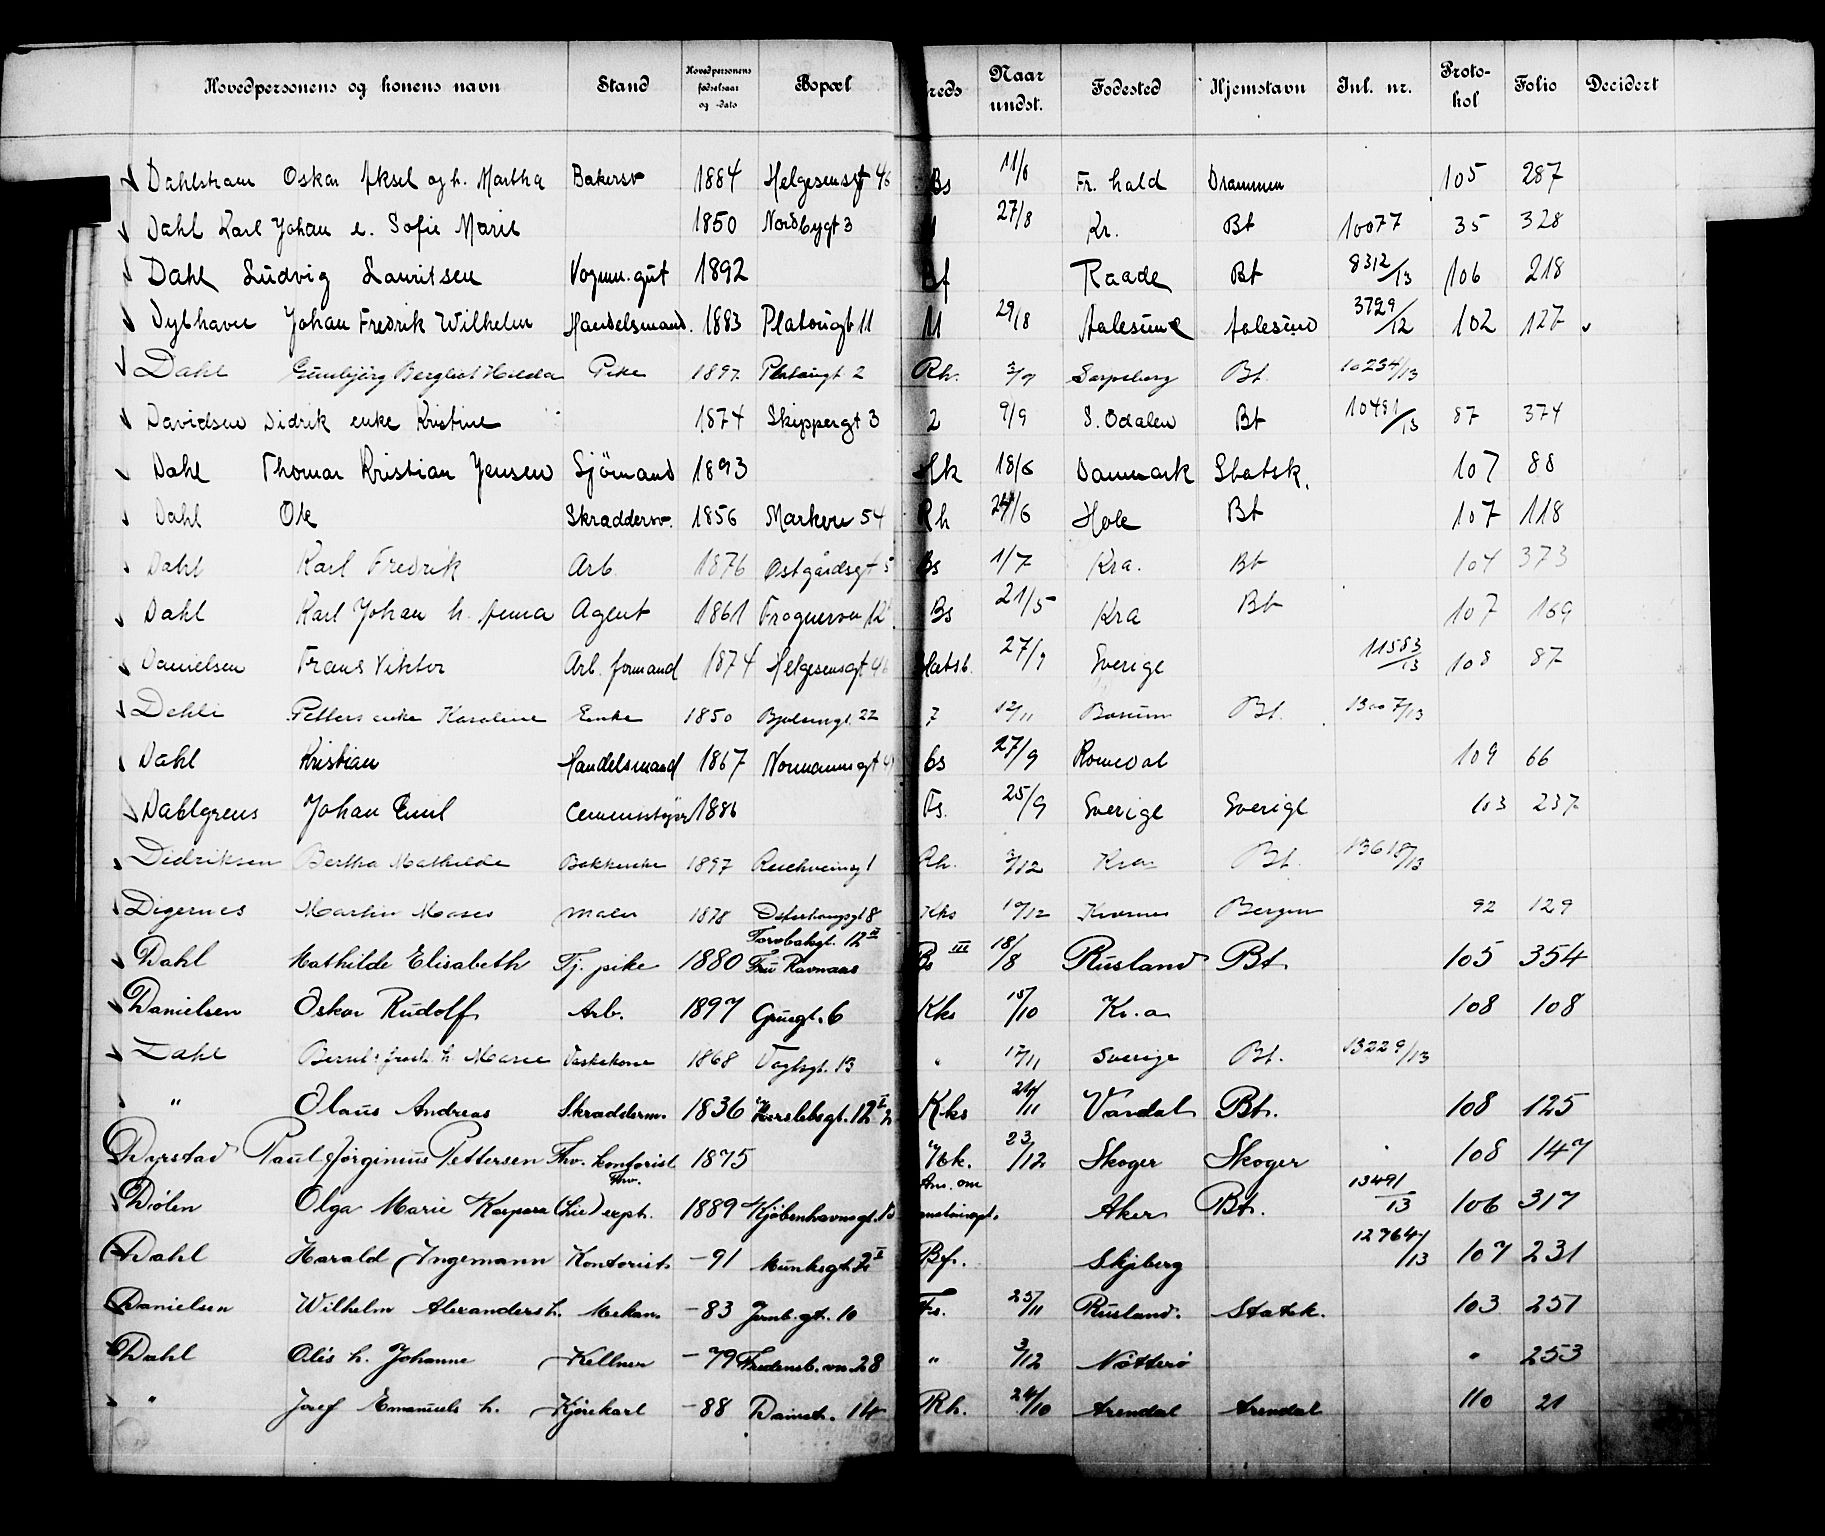 Hovedpersonens og konens navn Stand Hovedpersonens fødselsaar og -dato Bopæl Kreds Naar undst. Fødested Hjemstavn Inl. nr. Proto-kol Folio Decidert
Dahlstrøm Oskar Aksel og h. Martha Bakersv 1884 Helgesensgt 46 Bs 11/6 Fr. hald Drammen 105 287
Dahl Karl Johan e. Sofie Marie 1850 Nordbygt 3 27/8 Kr. Bt 10077 35 328
Dahl Ludvig Lauritsen Vognm. gut 1892 Bf Raade Bt 8312/13 106 218
Dybhavn Johan Fredrik Wilhelm Handelsmand. 1883 Platougt 11 11 29/8 Aalesund Aalesund 3729/12 102 127
Dahl Gunbjørg Bergliot Hilda Pike 1897 Platougt 2 Rh. 3/9 Sarpsborg Bt. 10234/13
Davidsen Didrik enke Kristine 1874 Skippergt 3 2 9/9 S. Odalen Bt 10491/13 87 374
Dahl Thomas Kristian Jensen Sjömand 1893 Hk 18/6 Danmark Statsk. 107 88
Dahl Ole Skraddersv. 1856 Markvn 54 Rh 24/6 Hole Bt 107 118
Dahl Karl Fredrik Arb. 1876 Østgårdsgt 5 Bs 1/7 Kra. Bt 104 373
Dahl Karl Johan h. Anna Agent 1861 Frognervn 12 Bs 21/5 Kra Bt 107 169
Danielsen Frans Viktor Arb. formand 1874 Helgesensgt 46 Hatsb. 27/9 Sverige 11583/13 108 87
Dehli Petters enke Karoline Enke 1850 Bjølsengt. 22 7 12/11 Bærum Bt. 13007/13
Dahl Kristian Handelsmand 1867 Normannsgt 4 Gs 27/9 Romedal 109 66
Dahlgrens Johan Emil Cementstøper 1886 Fs. 25/9 Sverige Sverige 103 237
Didriksen Bertha Mathilde 1897 Rh. 3/12 Kra Bt. 13618/13
Digernes Martin Moses Maler 1878 Dæhlenengt 8 Kks 10/12 Bergen 92 129
Dahl Mathilde Elisabeth Tj. pike 1880 Torvbakgt. 12 II Fru Ravnaas Bs III 18/8 Rusland Bt. 105 354
Danielsen Oskar Rudolf Arb. 1897 Grugt. 6 Kks 15/10 Kr.a 108 108
Dahl h. Marie Vaskekone 1868 Vogtsgt. 13 " 12/11 Sverige Bt. 13229/13
" Olaus Andreas Skradderm. 1836 Herslebsgt. 12 I Kks 24/11 Vardal Bt. 108 125
Dyrstad Paul Jörginius Pettersen Fhv. kontorist 1875 Vok. 23/12 Skoger Skoger 108 147
Dölen Olga Marie Kaspara Fhv. expt. 1889 Kjöbenhavnsgt. Ans. om Aker Bt. 13491/13 106 317
Dahl Harald Ingemann Kontorist -91 Munksgt. I Bf. Skjeberg 12764/13 107 231
Danielsen Wilhelm Alexanders h. Mekan. -83 Jernb.gt. 10 Fs. 25/11 Rusland. Statsk. 103 251
Dahl Olis h. Johanne Kellner -79 Fredensb.vn 28 " 3/12 Nötterö " 253
" Josef Emanuels h. Kjörekarl -88 Damstr. 14 Rh. 24/10 Arendal Arendal 110 21